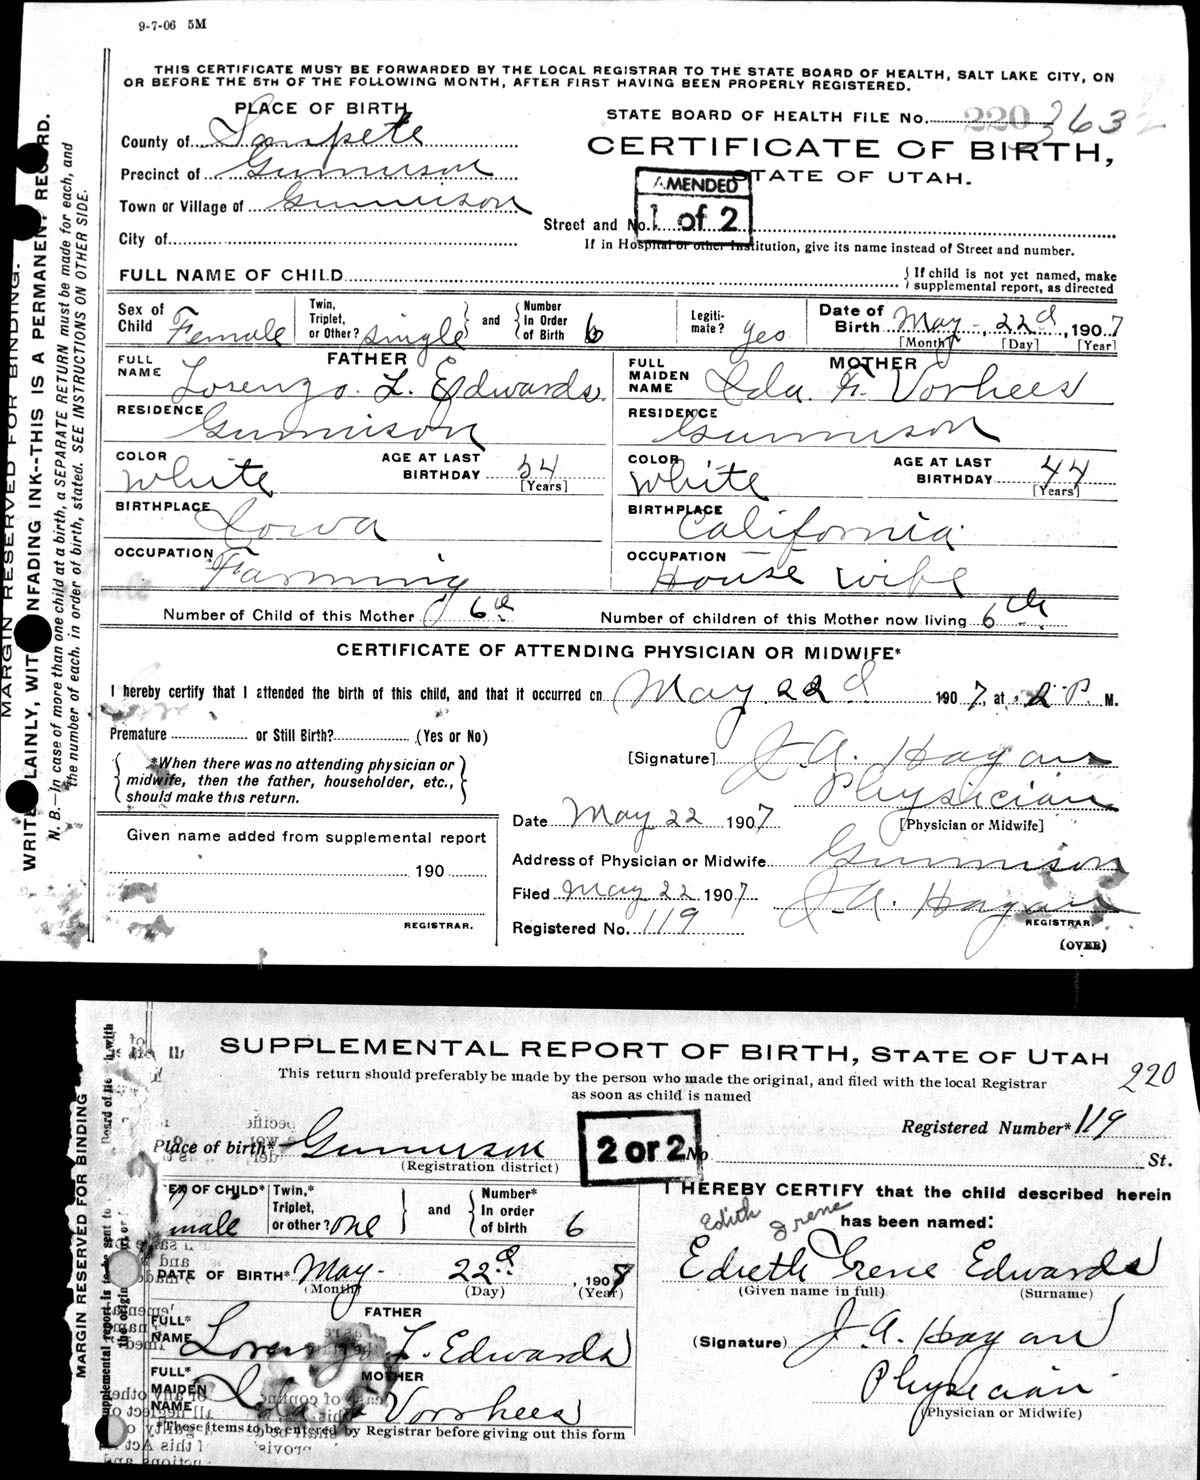 9-7-06 5M
THIS CERTIFICATE MUST BE FORWARDED BY THE LOCAL REGISTRAR TO THE STATE BOARD OF HEALTH, SALT LAKE CITY, ON
OR BEFORE THE 5TH OF THE FOLLOWING MONTH, AFTER FIRST HAVING BEEN PROPERLY REGISTERED.
PLACE OF BIRTH
STATE BOARD OF HEALTH FILE No. 220 363
County of Sanpete
CERTIFICATE OF BIRTH,
STATE OF UTAH.
Precinct of Gunnison
AMENDED
1 of 2
Town or Village of Gunnison
Street and No.
City of
If in Hospital or other Institution, give its name instead of Street and number.
FULL NAME OF CHILD
If child is not yet named, make
supplemental report, as directed
Sex of Child Female
Twin, Triplet, or Other? single
and
Number In Order of Birth 6
Legiti-mate? Yes
Date of Birth May 22d, 1907
[Month] [Day] [Year]
FATHER
FULL NAME Lorenzo L. Edwards
MOTHER
FULL MAIDEN NAME Ida F. Vorhees
RESIDENCE Gunnison
RESIDENCE Gunnison
COLOR White
AGE AT LAST BIRTHDAY 54
[Years]
COLOR White
AGE AT LAST BIRTHDAY 44
[Years]
BIRTHPLACE Iowa
BIRTHPLACE California
OCCUPATION Farming
OCCUPATION House wife
Number of Child of this Mother 6th
Number of children of this Mother now living 6th
CERTIFICATE OF ATTENDING PHYSICIAN OR MIDWIFE*
I hereby certify that I attended the birth of this child, and that it occurred on May 22d 1907, at 2 P. M.
Premature or Still Birth? (Yes or No)
*When there was no attending physician or
midwife, then the father, householder, etc.,
should make this return.
[Signature] J. A. Hagan
Physician
[Physician or Midwife]
Date May 22 1907
Given name added from supplemental report
190
REGISTRAR.
Address of Physician or Midwife Gunnison
Filed May 22 1907 J. A. Hagan
REGISTRAR.
Registered No. 119
(OVER)
MARGIN RESERVED FOR BINDING.
WRITE PLAINLY, WITH UNFADING INK--THIS IS A PERMANENT RECORD.
N. B.—In case of more than one child at a birth, a SEPARATE RETURN must be made for each, and
the number of each, in order of birth, stated. SEE INSTRUCTIONS ON OTHER SIDE.
SUPPLEMENTAL REPORT OF BIRTH, STATE OF UTAH
This return should preferably be made by the person who made the original, and filed with the local Registrar
as soon as child is named
220
Registered Number* 119
Place of birth* Gunnison
(Registration district)
2 of 2
No St.
SEX OF CHILD* male
Twin,* Triplet, or other? one
and
Number* In order of birth 6
I HEREBY CERTIFY that the child described herein
has been named:
Edith Irene
Edieth Irene Edwards
(Given name in full) (Surname)
DATE OF BIRTH* May 22d, 1907
(Month) (Day) (Year)
FATHER
FULL* NAME Lorenzo L. Edwards
(Signature) J. A. Hagan
Physician
(Physician or Midwife)
MOTHER
FULL* MAIDEN NAME Ida F Voorhees
*These items to be entered by Registrar before giving out this form
MARGIN RESERVED FOR BINDING